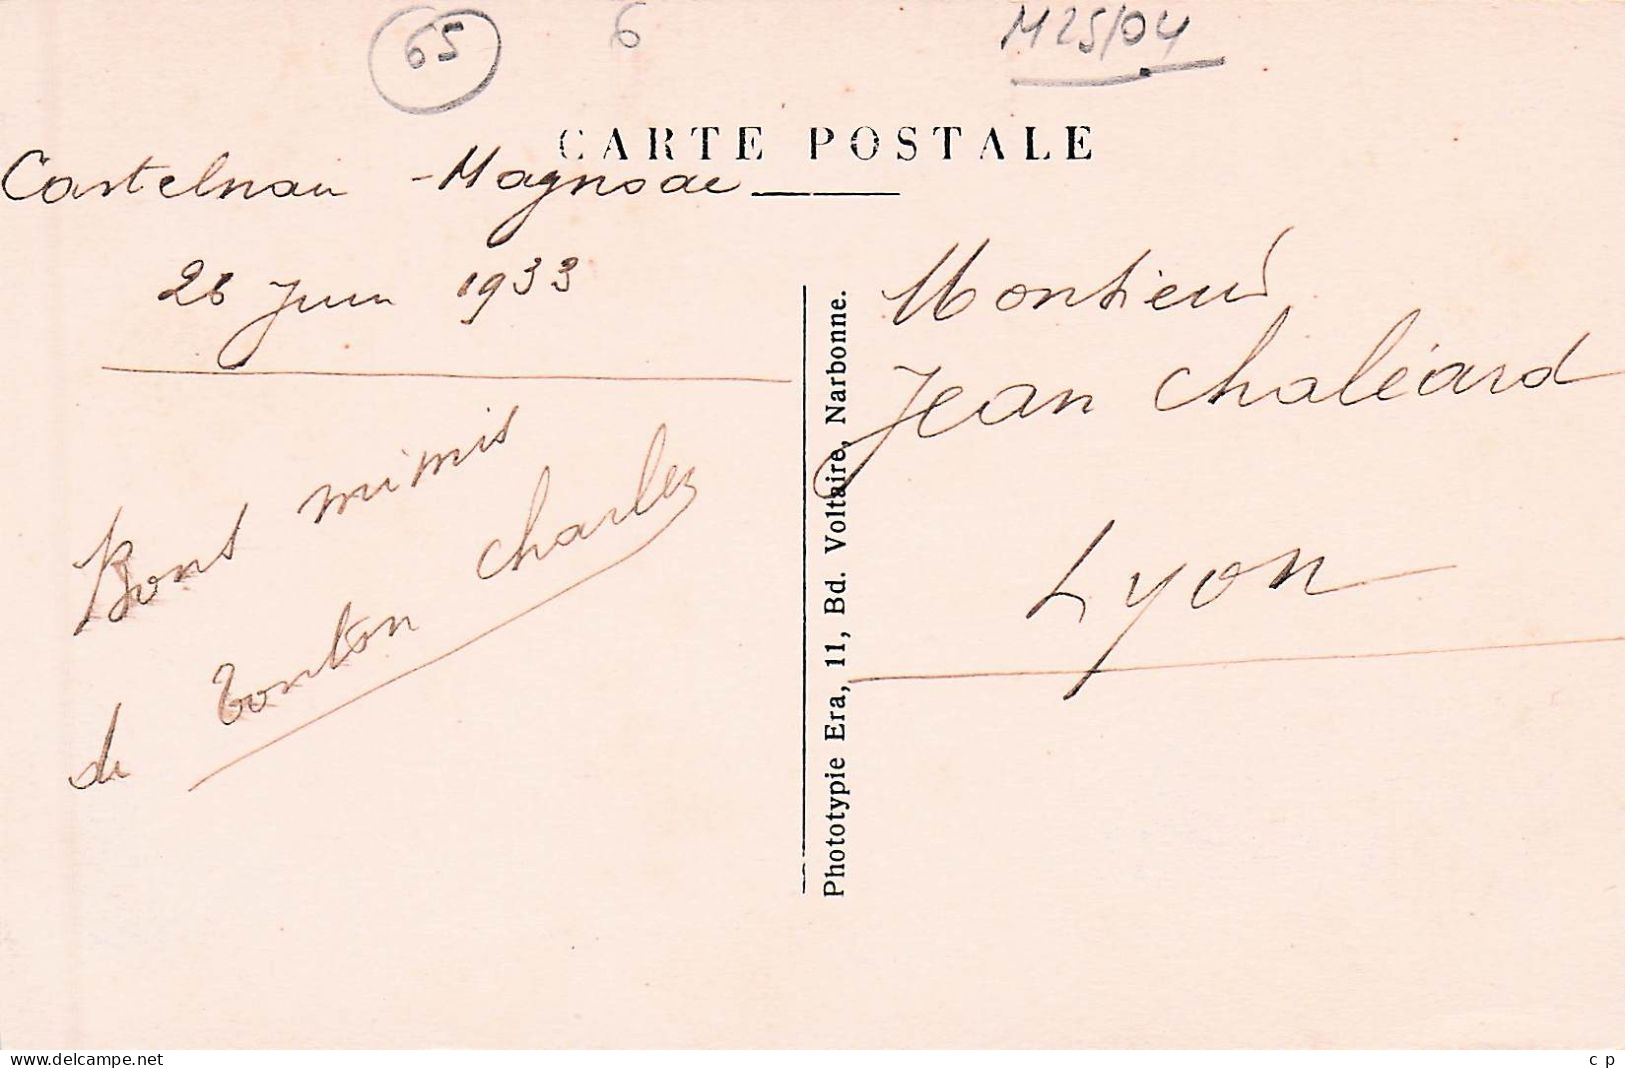 65
6
M25/04
CARTE POSTALE
Castelnau - Magnoac
28 Juin 1933
Bons mimis
de tonton Charles
Phototypie Era, 11, Bd. Voltaire, Narbonne.
Monsieur
Jean Chaléard
Lyon
www.delcampe.net
c p